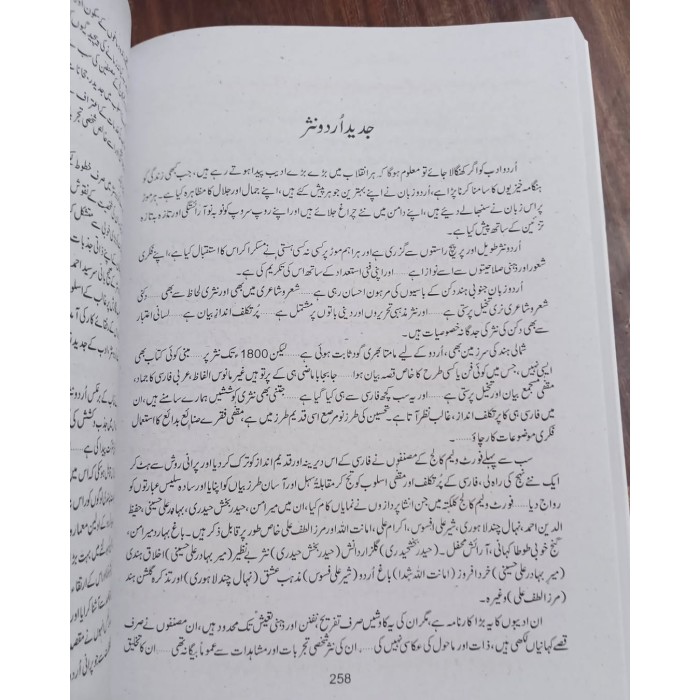 جدید اُردو نثر
اُردو ادب کو اگر کھنگالا جائے تو معلوم ہوگا کہ ہر انقلاب میں بڑے بڑے ادیب پیدا ہوتے رہے ہیں، جب کبھی زندگی کو
ہنگامہ خیزیوں کا سامنا کرنا پڑا ہے، اُردو زبان نے اپنے بہترین جوہر پیش کئے ہیں، اپنے جمال اور جلال کا مظاہرہ کیا ہے۔ ہر موڑ
پر اس زبان نے سنبھالے دیئے ہیں، اپنے دامن میں نئے چراغ جلائے ہیں اور اپنے روپ سروپ کو نوبہ نو آرائشگی اور تازہ بتازہ
تزئین کے ساتھ پیش کیا ہے۔
اُردو نثر طویل اور پرپیچ راستوں سے گزری ہے اور ہر اہم موڑ پر کسی نہ کسی ہستی نے مسکرا کر اس کا استقبال کیا ہے، اپنے فکری
شعور اور ذہنی صلاحیتوں سے اسے نوازا ہے...... اور اپنی فنی استعداد کے ساتھ اس کی تکریم کی ہے۔
اُردو زبان جنوبی ہند دکن کے باسیوں کی مرہون احسان رہی ہے...... شعر و شاعری میں بھی اور نثری لحاظ سے بھی...... دکنی
شعر و شاعری نری تخیل پرستی ہے...... اور نثر مذہبی تحریروں اور دینی باتوں پر مشتمل ہے...... پُر تکلف اندازِ بیان ہے...... لسانی اعتبار
سے بھی دکن کی نثر کی جداگانہ خصوصیات ہیں۔
شمالی ہند کی سر زمین بھی، اُردو کے لیے مامتا بھری گود ثابت ہوئی ہے...... لیکن 1800ء تک نثر پر...... مبنی کوئی کتاب بھی
ایسی نہیں، جس میں کوئی فن یا کسی طرح کا خاص قصہ بیان ہوا...... جابجا ماضی ہی کے پرتو ہیں غیر مانوس الفاظ، عربی فارسی کا جماد،
مقفیٰ مسجع بیان اور تخیل پرستی ہے...... اور یہ سب کچھ فارسی ہی سے لیا گیا ہے...... جتنی بھی نثری کوششیں ہمارے سامنے ہیں، ان
میں فارسی ہی کا پر تکلف انداز، غالب نظر آتا ہے۔ تحسین کی طرز نو مرصع اسی قدیم طرز میں ہے، مقفیٰ فقرے صنائع بدائع کا استعمال
فکری موضوعات کا رچاؤ......
سب سے پہلے فورٹ ولیم کالج کے مصنفوں نے فارسی کے اس دیرینہ اور قدیم انداز کو ترک کر دیا اور پرانی روش سے ہٹ کر
ایک نئے نہج کی راہ لی، فارسی کے پُر تکلف اور مقفیٰ اسلوب کو تج کر مقابلۃً سہل اور آسان طرز بیاں کو اپنایا اور سادہ سلیس عبارتوں کو
رواج دیا...... فورٹ ولیم کالج کلکتہ میں جن انشا پردازوں نے نمایاں کام کیا، ان میں میر امن، حیدر بخش حیدری، بہادر علی حسینی، حفیظ
الدین احمد، نہال چند لاہوری، شیر علی افسوس، اکرام علی، امانت اللہ اور مرزا لطف علی خاص طور پر قابل ذکر ہیں۔ باغ و بہار میر امن،
گنج خوبی طوطا کہانی، آرائش محفل۔ (حیدر بخش حیدری) گلزار دانش (حیدر بخش حیدری) نثر بے نظیر (میر بہادر علی حسینی) اخلاق ہندی
(میر بہادر علی حسینی) خرد افروز (امانت اللہ شیدا) باغ اُردو (شیر علی افسوس) مذہب عشق (نہال چند لاہوری) اور تذکرہ گلشن ہند
(مرزا لطف علی) وغیرہ۔
ان ادیبوں کا یہ بڑا کارنامہ ہے، مگر ان کی یہ کاوشیں صرف تفریح، تفنن اور ذہنی تعیش تک محدود ہیں، ان مصنفوں نے صرف
قصے کہانیاں لکھی ہیں، ذات اور ماحول کی عکاسی نہیں کی...... ان کی نثر شخصی تجربات اور مشاہدات سے عموماً بیگانہ تھی...... ان کا تخلیق
258